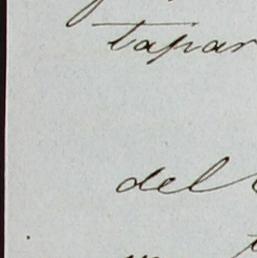 tapar
del